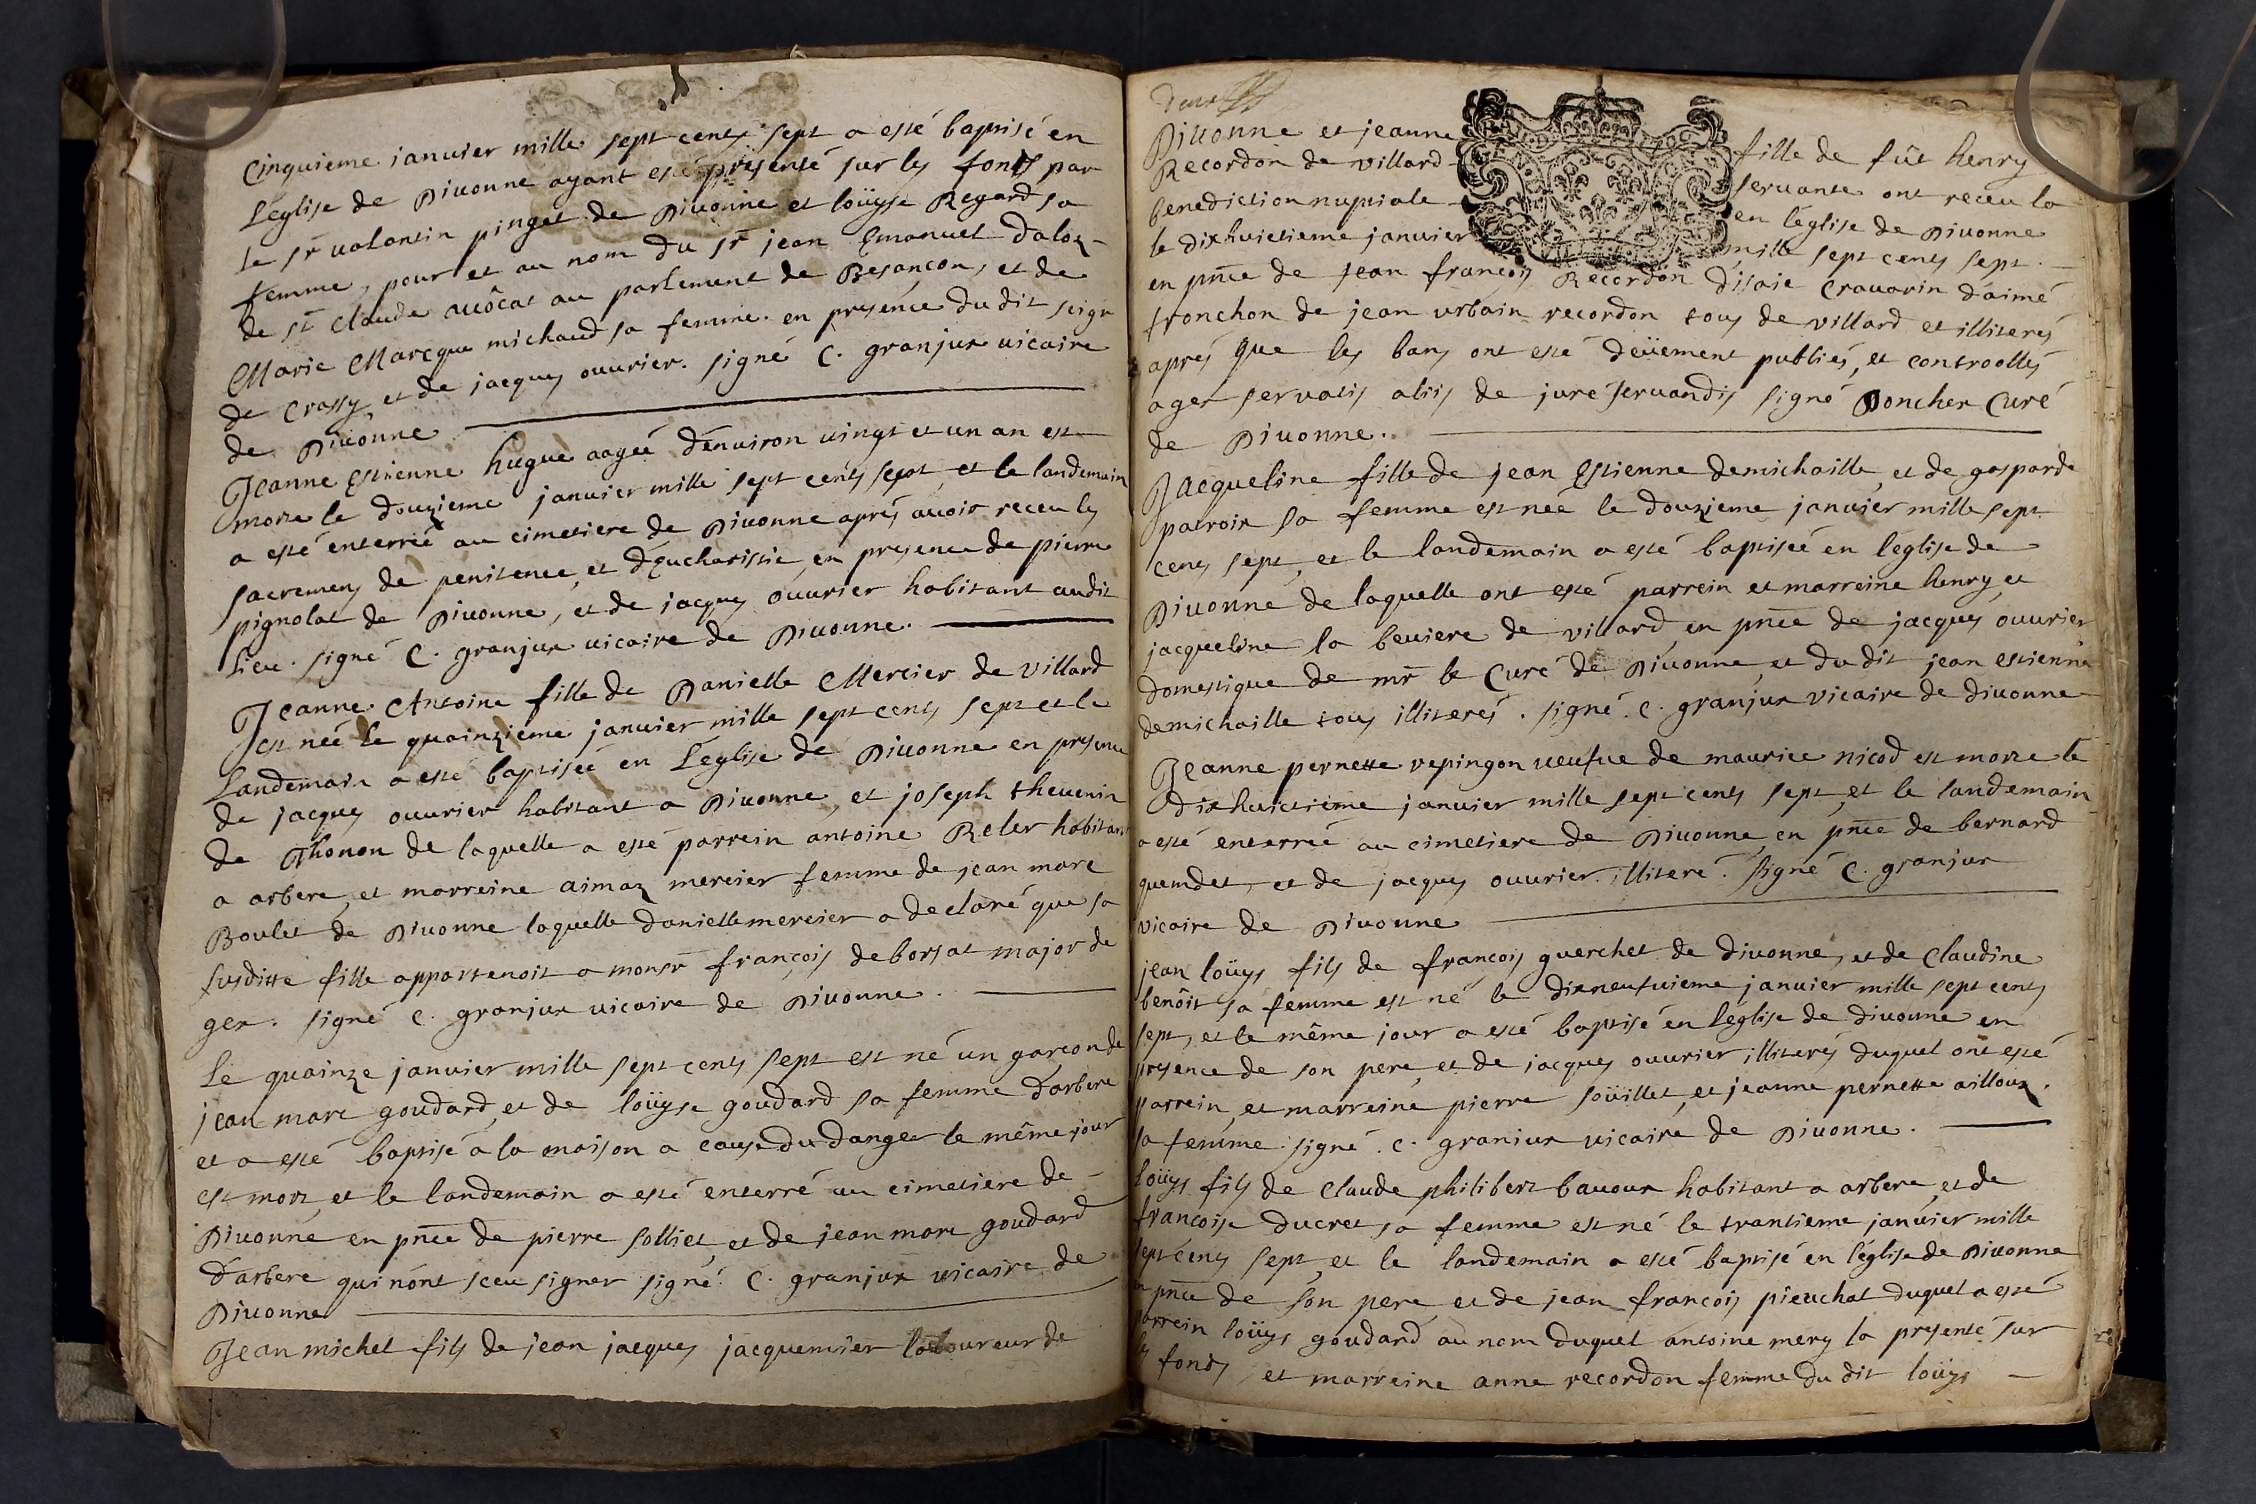 Cinquieme januier mille sept cents sept a esté baptisé en
Léglise de Diuonne ayant esté presenté sur les fonds par
Le sr valantin pinget de Diuonne et loüyse Regard sa
femme, pour et au nom du sr jean Emanuel daloz
de st claude auôcat au parlement de Besançon, et de
Marie Marcque michaud sa femme. en presence du dit seigr
de Crassy et de jacques ouurier. signé C. granjux uicaire
de Diuonne
Jeanne Estienne hugue aagée d'enuiron uingt et un an est
morte le douzieme januier mille sept cents sept et le landemain
a esté enterrée au cimetiere de Diuonne aprés auoir receu les
sacremens de penitence, et d'Eucharistie, en presence de pierre
pignolat de Diuonne, et de jacques ouurier habitant audit
Lieu. signé C. granjux uicaire de Diuonne.
Jeanne Antoine fille de Danielle Mercier de villard
est née le quainzieme januier mille sept cents sept et le
Landemain a esté baptisée en Léglise de Diuonne en presence
de jacques ouurier habitant a Diuonne, et joseph theuenin
de Thonon de laquelle a esté parrein antoine Reler habitant
a arbere, et marreine aimaz mercier femme de jean marc
Boulet de Diuonne laquelle danielle mercier a declaré que sa
susditte fille appartenoit a monsr françois de borsat major de
gex. signé c. granjux uicaire de Diuonne.
Le quainze januier mille sept cents sept est né un garcon de
jean marc goudard, et de loüyse goudard sa femme d'arbere
et a esté baptisé a la maison a cause du danger le même jour
est mort, et le landemain a esté enterré au cimetiere de
Diuonne en pnce de pierre solliet, et de jean marc goudard
d'arbere qui n'ont sceu signer signé. C. granjux uicaire de
Diuonne
Jean michel fils de jean jacques jacquemier laboureur de
Diuonne et jeanne fille de fût henry
Recordon de villard seruante ont receu la
benediction nuptiale en l'église de Diuonne
le dixhuictieme januier mille sept cents sept
en pnce de jean françois Recordon d'isaie Crauarin d'aimé
tronchon de jean urbain recordon tous de villard et illiterés
aprés que les bans ont esté deüement publiés, et controollés
a gex servatis aliis de jure seruandis signé Poncher Curé
de Diuonne.
Jacqueline fille de jean Estienne demichaille, et de gasparde
patroix sa femme est née le douzieme januier mille sept
cents sept, et le landemain a esté baptisée en leglise de
Diuonne de laquelle ont esté parrein et marreine henry, et
jacqueline la beuiere de villard en pnce de jacques ouurier
domestique de mr le Curé de Diuonne, et du dit jean estienne
demichaille tous illiterés. signé. c. granjux vicaire de diuonne
Jeanne pernette repingon ueufue de maurice nicod est morte le
dixhuictieme januier mille sept cents sept, et le landemain
a esté enterrée au cimetiere de Diuonne, en pnce de bernard
quemdet, et de jacques ouurier illiteré. signé C. granjux
vicaire de Diuonne
jean loüys fils de françois guerchet de diuonne, et de Claudine
benôit sa femme est né le dixneufuieme januier mille sept cents
sept, et le même jour a esté baptisé en Léglise de diuonne en
presence de son pere, et de jacques ouurier illiterés duquel ont esté
parrein, et marreine pierre soüillet, et jeanne pernetteailloux
sa femme signé. c. granjux vicaire de Diuonne.
loüys fils de claude philibert bauoux habitant a arbere, et de
francoise ducret sa femme est né le trantieme januier mille
sept cents sept, et le landemain a esté baptisé en l'église de Diuonne
en pnce de son pere et de jean françois pieuchat duquel a esté
parrein loüys goudard au nom duquel antoine mery la presenté sur
les fonds et marreine anne recordon femme du dit loüys